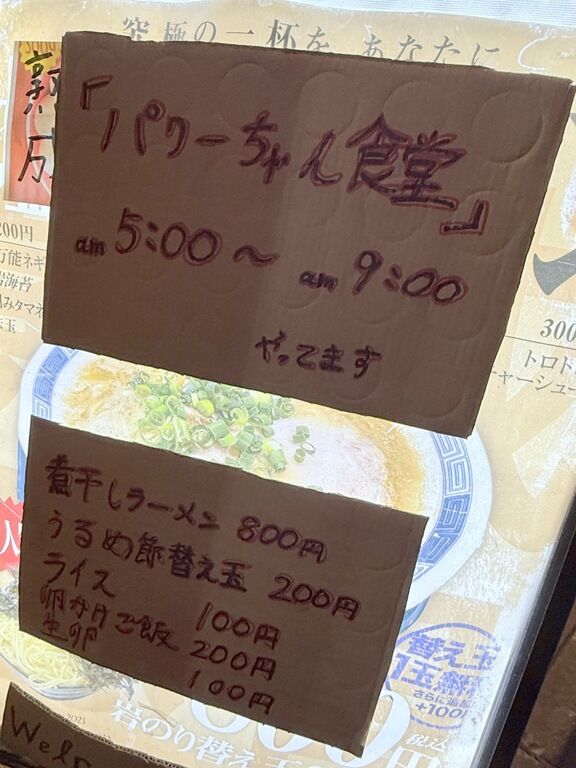 究極の一杯を あなたに
熟成
「パワーちゃん食堂」
am 5:00 〜 am 9:00
やってます
200円
万能ネギ
岩海苔
玉
300
トロト
チャーシュー
煮干しラーメン 800円
うるめ節替え玉 200円
ライス 100円
卵かけご飯 200円
生卵 100円
替え玉
1玉無
さらに追加
+100
2021
岩のり替え玉
円
税込
Welc